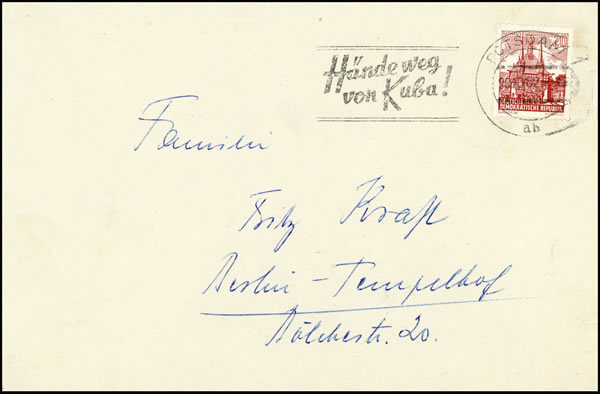 Hände weg
von Kuba!
POTSDAM
20
DEMOKRATISCHE REPUBLIK
ah
Familie
Fritz Kraft
Berlin-Tempelhof
Bölckestr. 20.